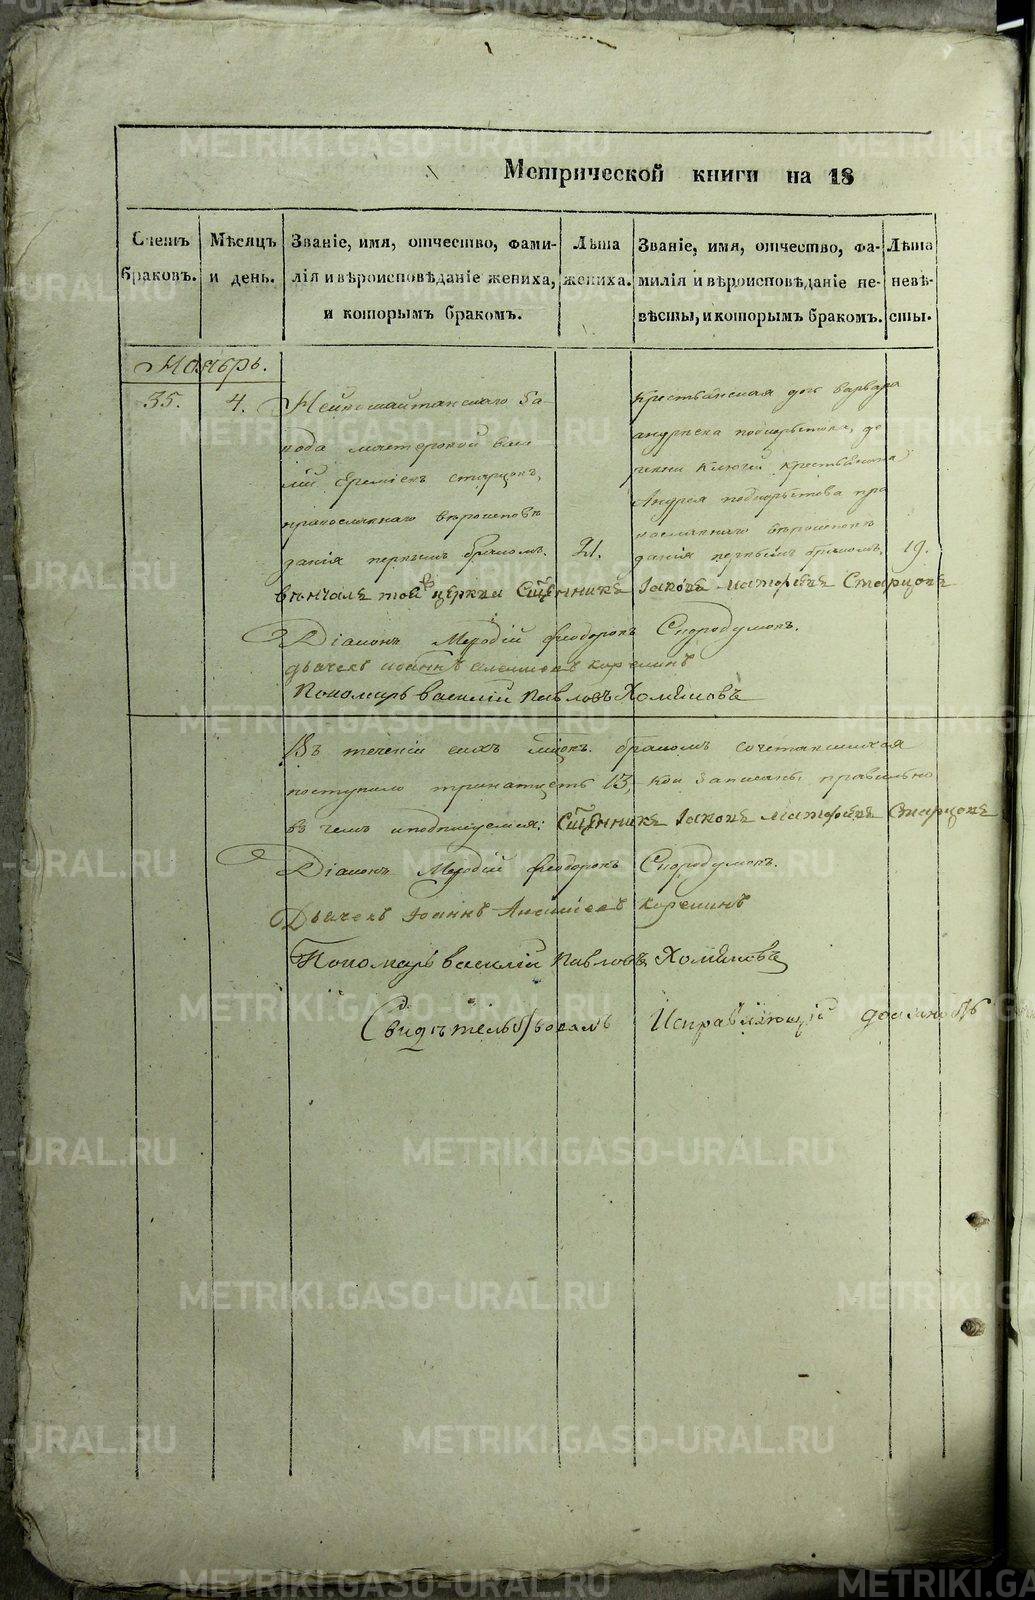 Метрической книги на 18
Счетъ браковъ.
Мѣсяцъ и день.
Званіе, имя, отчество, фами-
лія и вѣроисповѣданіе жениха,
и которымъ бракомъ.
Лѣта жениха.
Званіе, имя, отчество, фа-
милія и вѣроисповѣданіе не-
вѣсты, и которымъ бракомъ.
Лѣта невѣ-
сты.
Ноябрь.
35.
4.
Нейвошайтанскаго За
вода мастерской Васи
лій Еремѣевъ Старцовъ,
православнаго вѣроисповѣ
данія первымъ бракомъ.
21.
Крестьянская дочь Варвара
Андреева
ревни Ключей крестьянина
Андрея пра
вославнаго вѣроисповѣ
данія первымъ бракомъ.
19.
Вѣнчалъ той церкви Сщ҃енникъ Іаковъ Матѳѣевъ Старцовъ
Діаконъ Меѳодій Ѳеодоровъ Скородумовъ.
Дьячекъ Іоаннъ Алексіевъ Корелинъ
Пономарь Василій Павловъ Хомяковъ
Въ теченіи сихъ бракомъ сочетавшихся
поступило тринатцеть 13, кои записаны правильно
въ чемъ и подписуемся: Сщ҃енникъ Іаковъ Матѳѣевъ Старцовъ
Діаконъ Меѳодій Ѳеодоровъ Скородумовъ.
Дьячекъ Іоаннъ Алексіевъ Корелинъ
Пономарь Василій Павловъ Хомяковъ
Свидѣтельствовалъ Исправляющій должность
METRIKI.GASO-URAL.RU